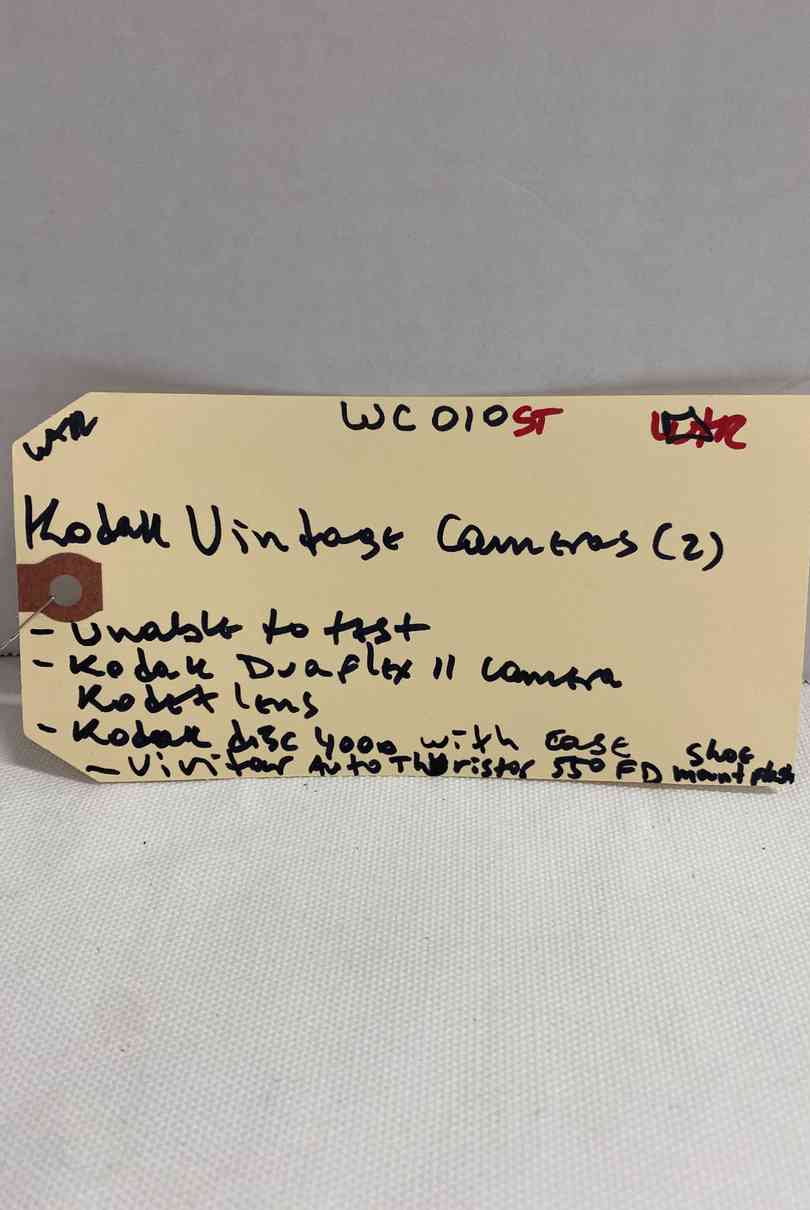 WC010ST
Kodak Vintage Cameras (2)
- Unable to test
- Kodak Duaflex II camera
Kodet lens
- Kodak disc 4000 with case
- Vivitar Auto Thyristor 550 FD shoe mount flash